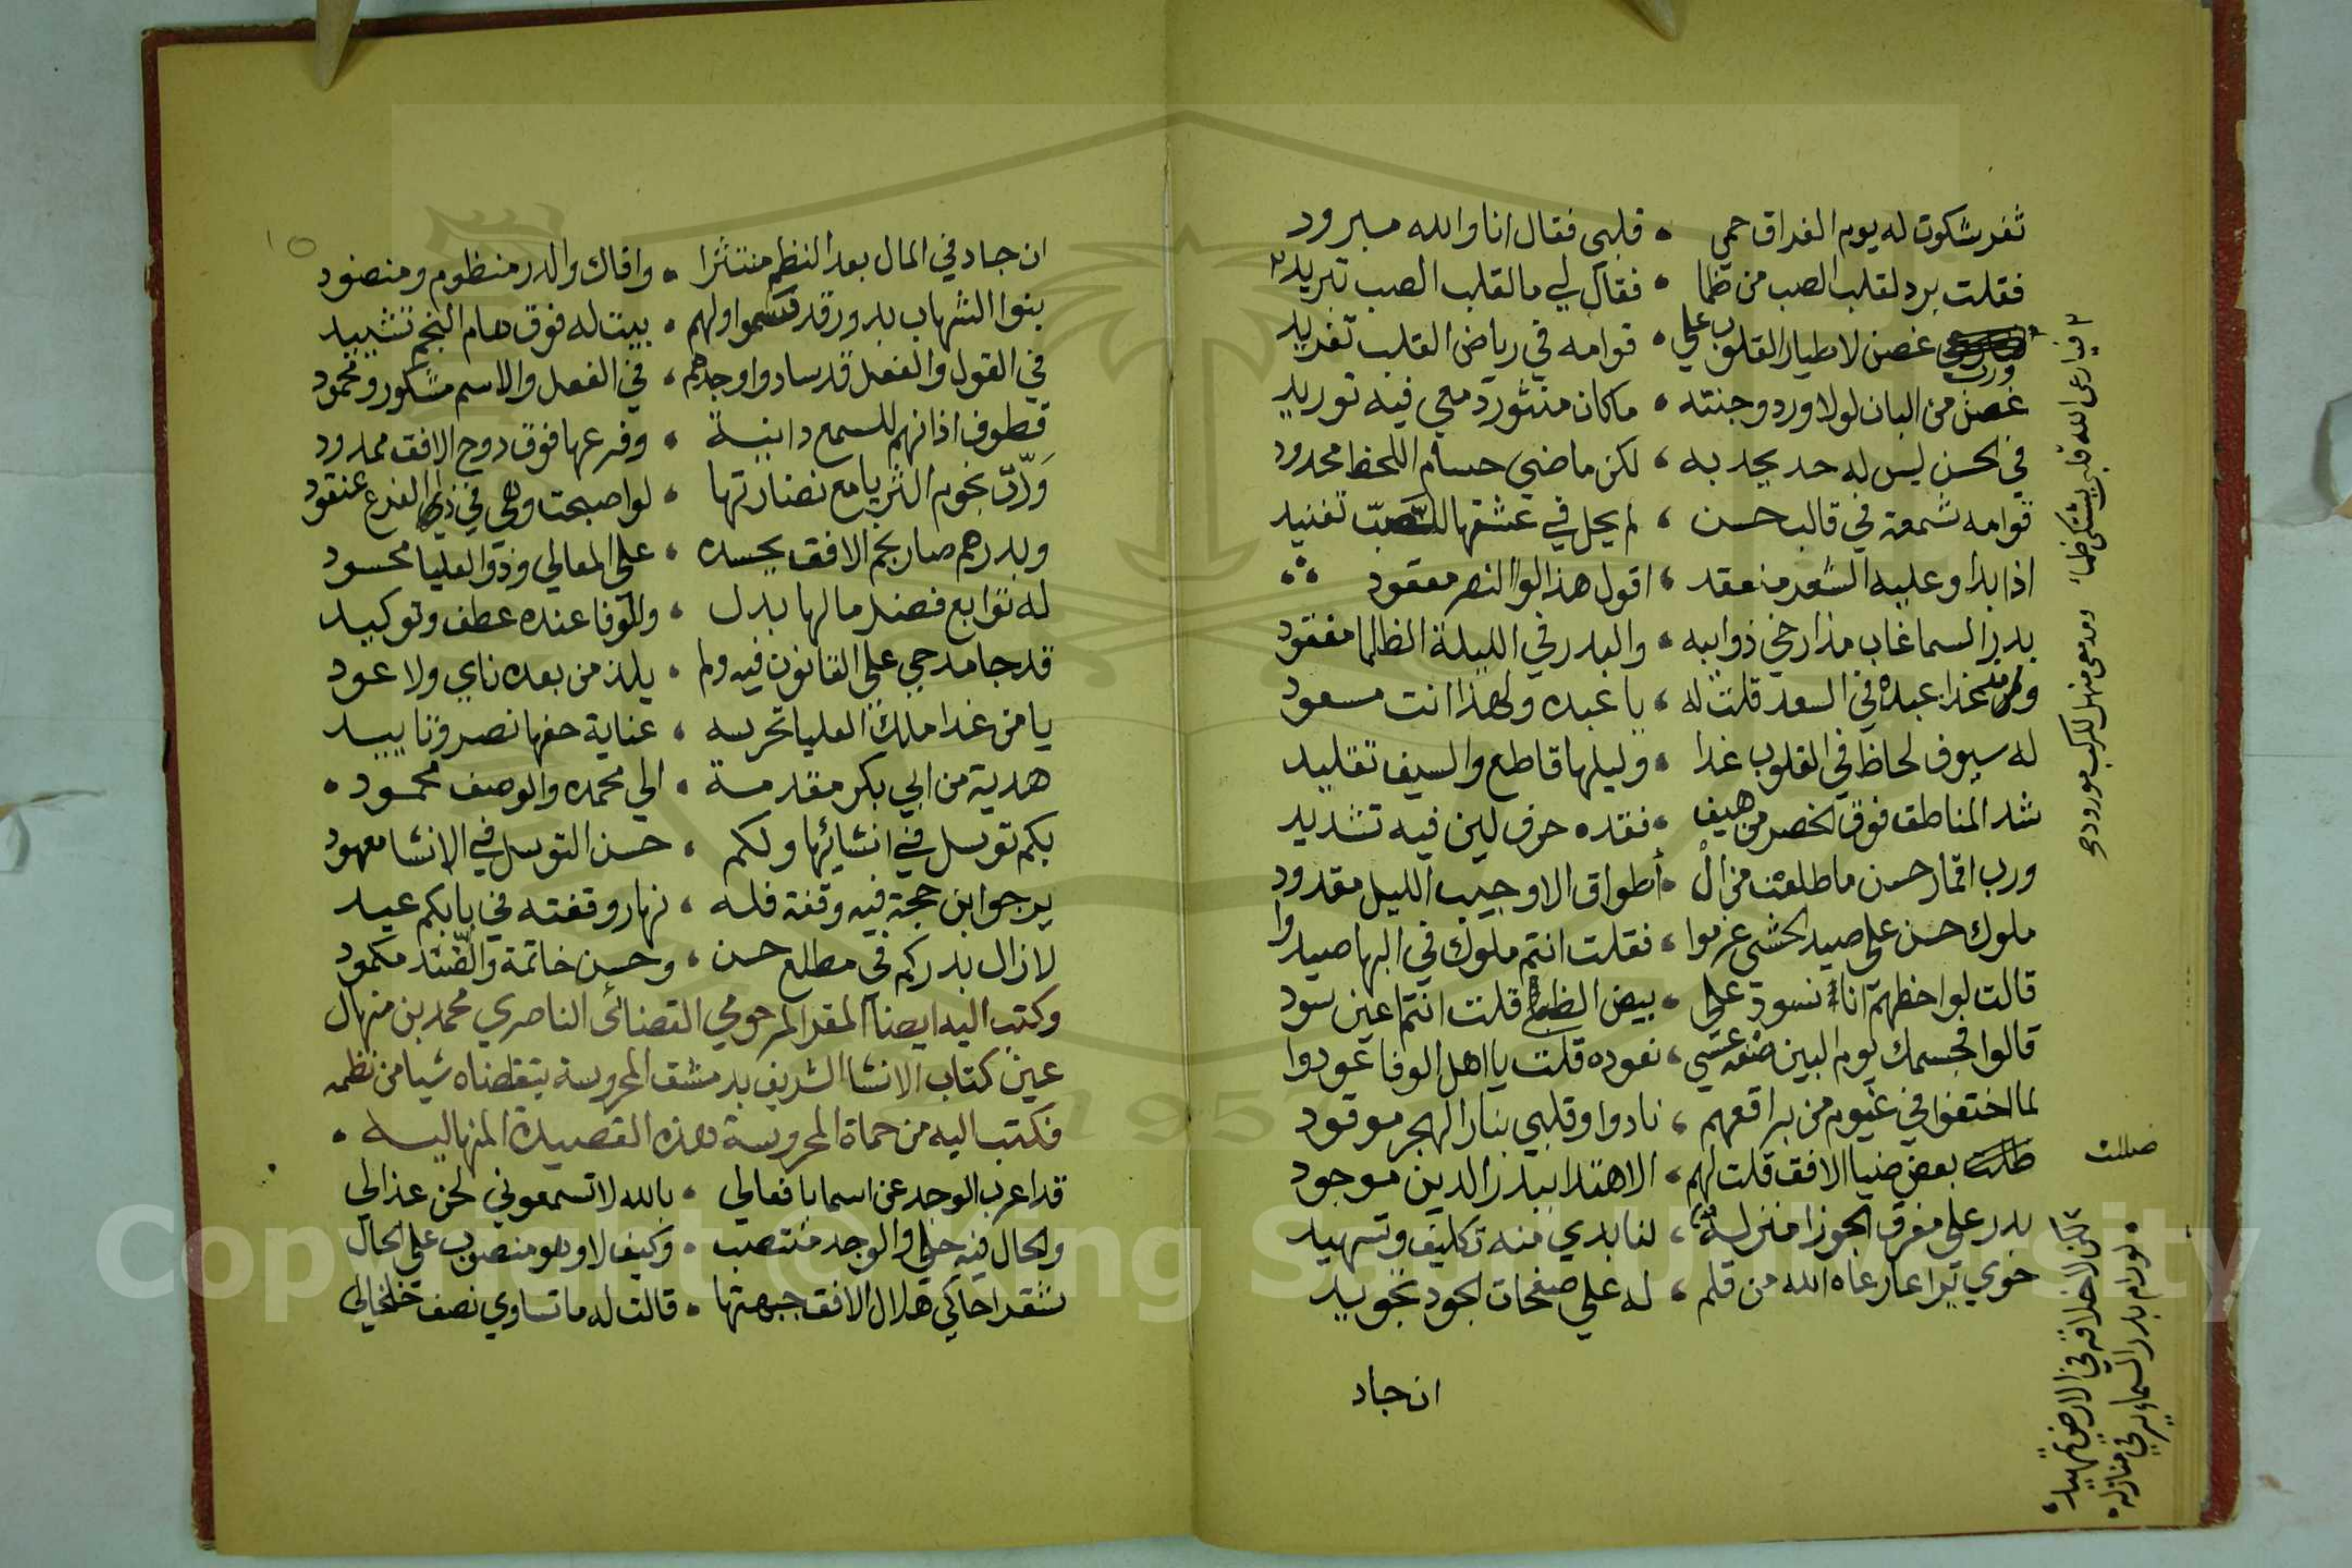 ثغر شكوت له يوم الفراق حمى ، قلبي فقال انا والله مبرود
فقلت برد لقلب الصب من ظما ، فقال لي ما لقلب الصب تبريد ٢
غصن لاطيار القلوب على ، قوامه في رياض القلب تغريد
ورب
غصن من البان لولا ورد وجنته ، ما كان منثور دمعي فيه توريد
في الحسن ليس له حد يحد به ، لكن ماضي حسام اللحظ محدود
قوامه شمعة في قالب حسن ، لم يحل في عشقها للصب تفنيد
اذا بدا وعليه الشعر منعقد ، اقول هذا لوا النصر معقود
بدر السما غاب مذ ارخى ذوايبه ، والبدر في الليلة الظلما مفقود
غدا عبده في السعد قلت له ، يا عبده ولهذا انت مسعود
له سيوف لحاظ في القلوب غدا ، وليلها قاطع والسيف تقليد
شد المناطق فوق الخصر من هيف ، فقده حرف لين فيه تشديد
ورب اقمار حسن ما طلعن من ال ، أطواق الا وجيب الليل مقدود
ملوك حسن على صيد الحشى عزموا ، فقلت انتم ملوك في البها صيدوا
قالت لواحظهم انا نسود على ، بيض الظبا قلت انتم اعين سود
قالوا لجسمك يوم البين عسى ، نعوده قلت يا اهل الوفا عودوا
لما اختفوا في غيوم من براقعهم ، نادوا وقلبي بنار الهجر موقود
بعض ضيا الافق قلت لهم ، الاهتدا ببدر الدين موجود
بدر على مفرق الجوزا منزلة ، لنا بدي منه تكليف وتسهيد
حوى يراعا رعاه الله من قلم ، له على صفحات الجود تجويد
ان جاد
٢ فيا رعى الله قلبي يشتكي ظما ، ومدمعي منهل للركب مورود
ضللت
لكن لاخلاقه في الارض تمهيد ،
، لو رام بدر السما يسري في منازله ،
١٥
ان جاد في المال بعد النظم منتثرا ، وافاك والدر منظوم ومنضود
بنوا الشهاب بدور قد سموا ولهم ، بيت له فوق هام النجم تشييد
في القول والفعل قد سادوا وجدهم ، في الفعل والاسم مشكور ومحمود
قطوف اذانهم للسمع دانية ، وفرعها فوق دوح الافق ممدود
ودّت نجوم الثريا مع نضارتها ، لو اصبحت وهي في ذا الفرع عنقود
وبدرهم صار نجم الافق يحسده ، على المعالي وذو العليا محسود
له توابع فضل ما لها بدل ، والوفا عنده عطف وتوكيد
قد جا مدحي على القانون فيه ولم ، يلذ من بعده ناي ولا عود
يا من غدا ملك العليا تحرسه ، عناية حفها نصر وتاييد
هدية من ابي بكر مقدمة ، الى محمد والوصف محمود ،
بكم توسل في انشائها ولكم ، حسن التوسل في الانشا معهود
يرجوا بن حجة فيه وقفة فله ، نهار وقفته في بابكم عيد
لا زال بدركم في مطلع حسن ، وحسن خاتمة والضد مكمود
وكتب اليه ايضا المقر المرحومي القضائى الناصري محمد بن منهال
عين كتاب الانشا الشريف بدمشق المحروسة يتقاضاه شيا من نظمه
فكتب اليه من حماة المحروسة هذه القصيدة المنهالية ،
قد اعرب الوجد عن اسما بافعالي ، بالله لا تسمعوني لحن عذالي
والحال فيه حلى والوجد منتصب ، وكيف لا وهو منصوب على الحال
شقرا حاكي هلال الافق جبهتها ، قالت له ما تساوي نصف خلخالي
Copyright © King Saud University
1957